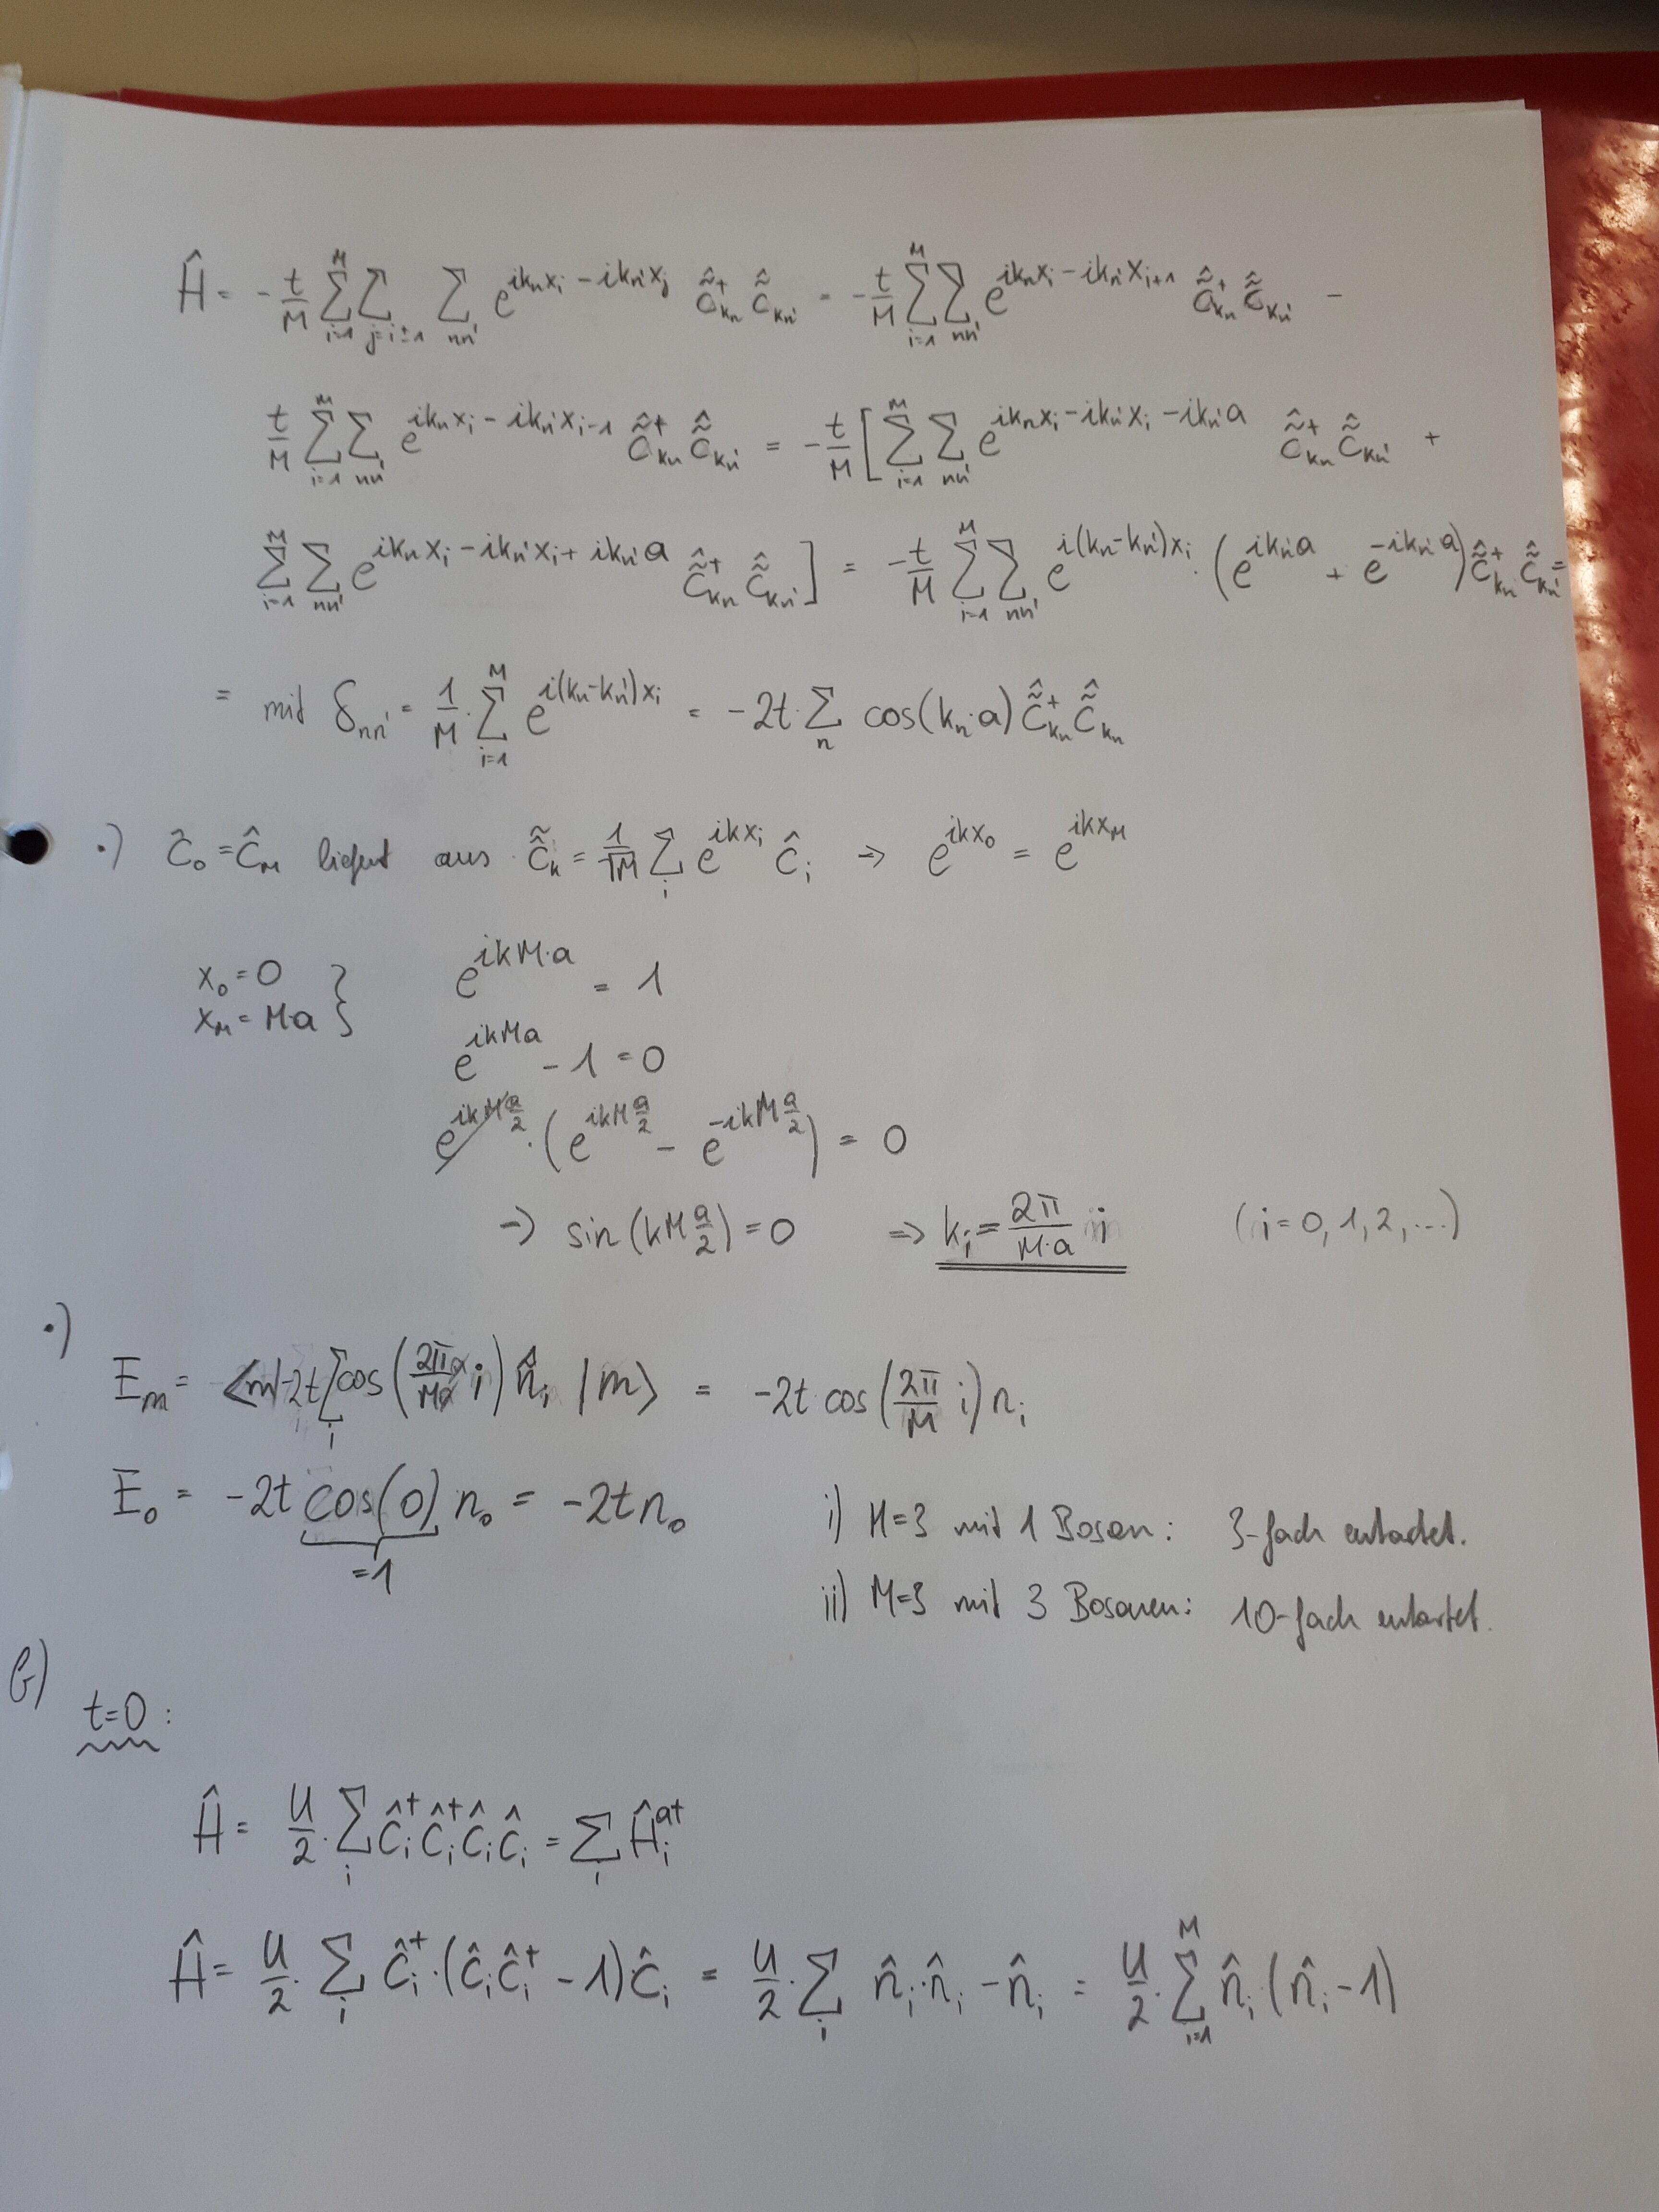 Ĥ = -t/M ∑_{i=1}^{M} ∑_{j=i±1} ∑_{nn'} e^{ik_n x_i - ik_n' x_j} ĉ̃⁺_{k_n} ĉ̃_{k_n'} = -t/M ∑_{i=1}^{M} ∑_{nn'} e^{ik_n x_i - ik_n' x_{i+1}} ĉ̃⁺_{k_n} ĉ̃_{k_n'} -
t/M ∑_{i=1}^{M} ∑_{nn'} e^{ik_n x_i - ik_n' x_{i-1}} ĉ̃⁺_{k_n} ĉ̃_{k_n'} = -t/M [ ∑_{i=1}^{M} ∑_{nn'} e^{ik_n x_i - ik_n' x_i - ik_n' a} ĉ̃⁺_{k_n} ĉ̃_{k_n'} +
∑_{i=1}^{M} ∑_{nn'} e^{ik_n x_i - ik_n' x_i + ik_n' a} ĉ̃⁺_{k_n} ĉ̃_{k_n'} ] = -t/M ∑_{i=1}^{M} ∑_{nn'} e^{i(k_n - k_n')x_i} · (e^{ik_n' a} + e^{-ik_n' a}) ĉ̃⁺_{k_n} ĉ̃_{k_n'} =
= mit δ_{nn'} = 1/M · ∑_{i=1}^{M} e^{i(k_n - k_n')x_i} = -2t · ∑_n cos(k_n · a) ĉ̃⁺_{k_n} ĉ̃_{k_n}
•) ĉ_0 = ĉ_M liefert aus ĉ̃_k = 1/√M ∑_i e^{ikx_i} ĉ_i → e^{ikx_0} = e^{ikx_M}
x_0 = 0 } e^{ikM·a} = 1
x_M = M·a
e^{ikMa} - 1 = 0
e^{ikM a/2} · (e^{ikM a/2} - e^{-ikM a/2}) = 0
→ sin(kM a/2) = 0 ⇒ k_i = 2π/(M·a) i (i = 0, 1, 2, ...)
•)
E_m = ⟨m| -2t ∑_i cos(2πa/(Ma) i) n̂_i |m⟩ = -2t cos(2π/M i) n_i
E_0 = -2t cos(0) n_0 = -2t n_0
=1
i) M=3 mit 1 Boson: 3-fach entartet.
ii) M=3 mit 3 Bosonen: 10-fach entartet.
b)
t=0:
Ĥ = U/2 · ∑_i ĉ_i⁺ ĉ_i⁺ ĉ_i ĉ_i = ∑_i Ĥ_i^{at}
Ĥ = U/2 · ∑_i ĉ_i⁺ · (ĉ_i ĉ_i⁺ - 1) ĉ_i = U/2 · ∑_i n̂_i · n̂_i - n̂_i = U/2 · ∑_{i=1}^{M} n̂_i · (n̂_i - 1)